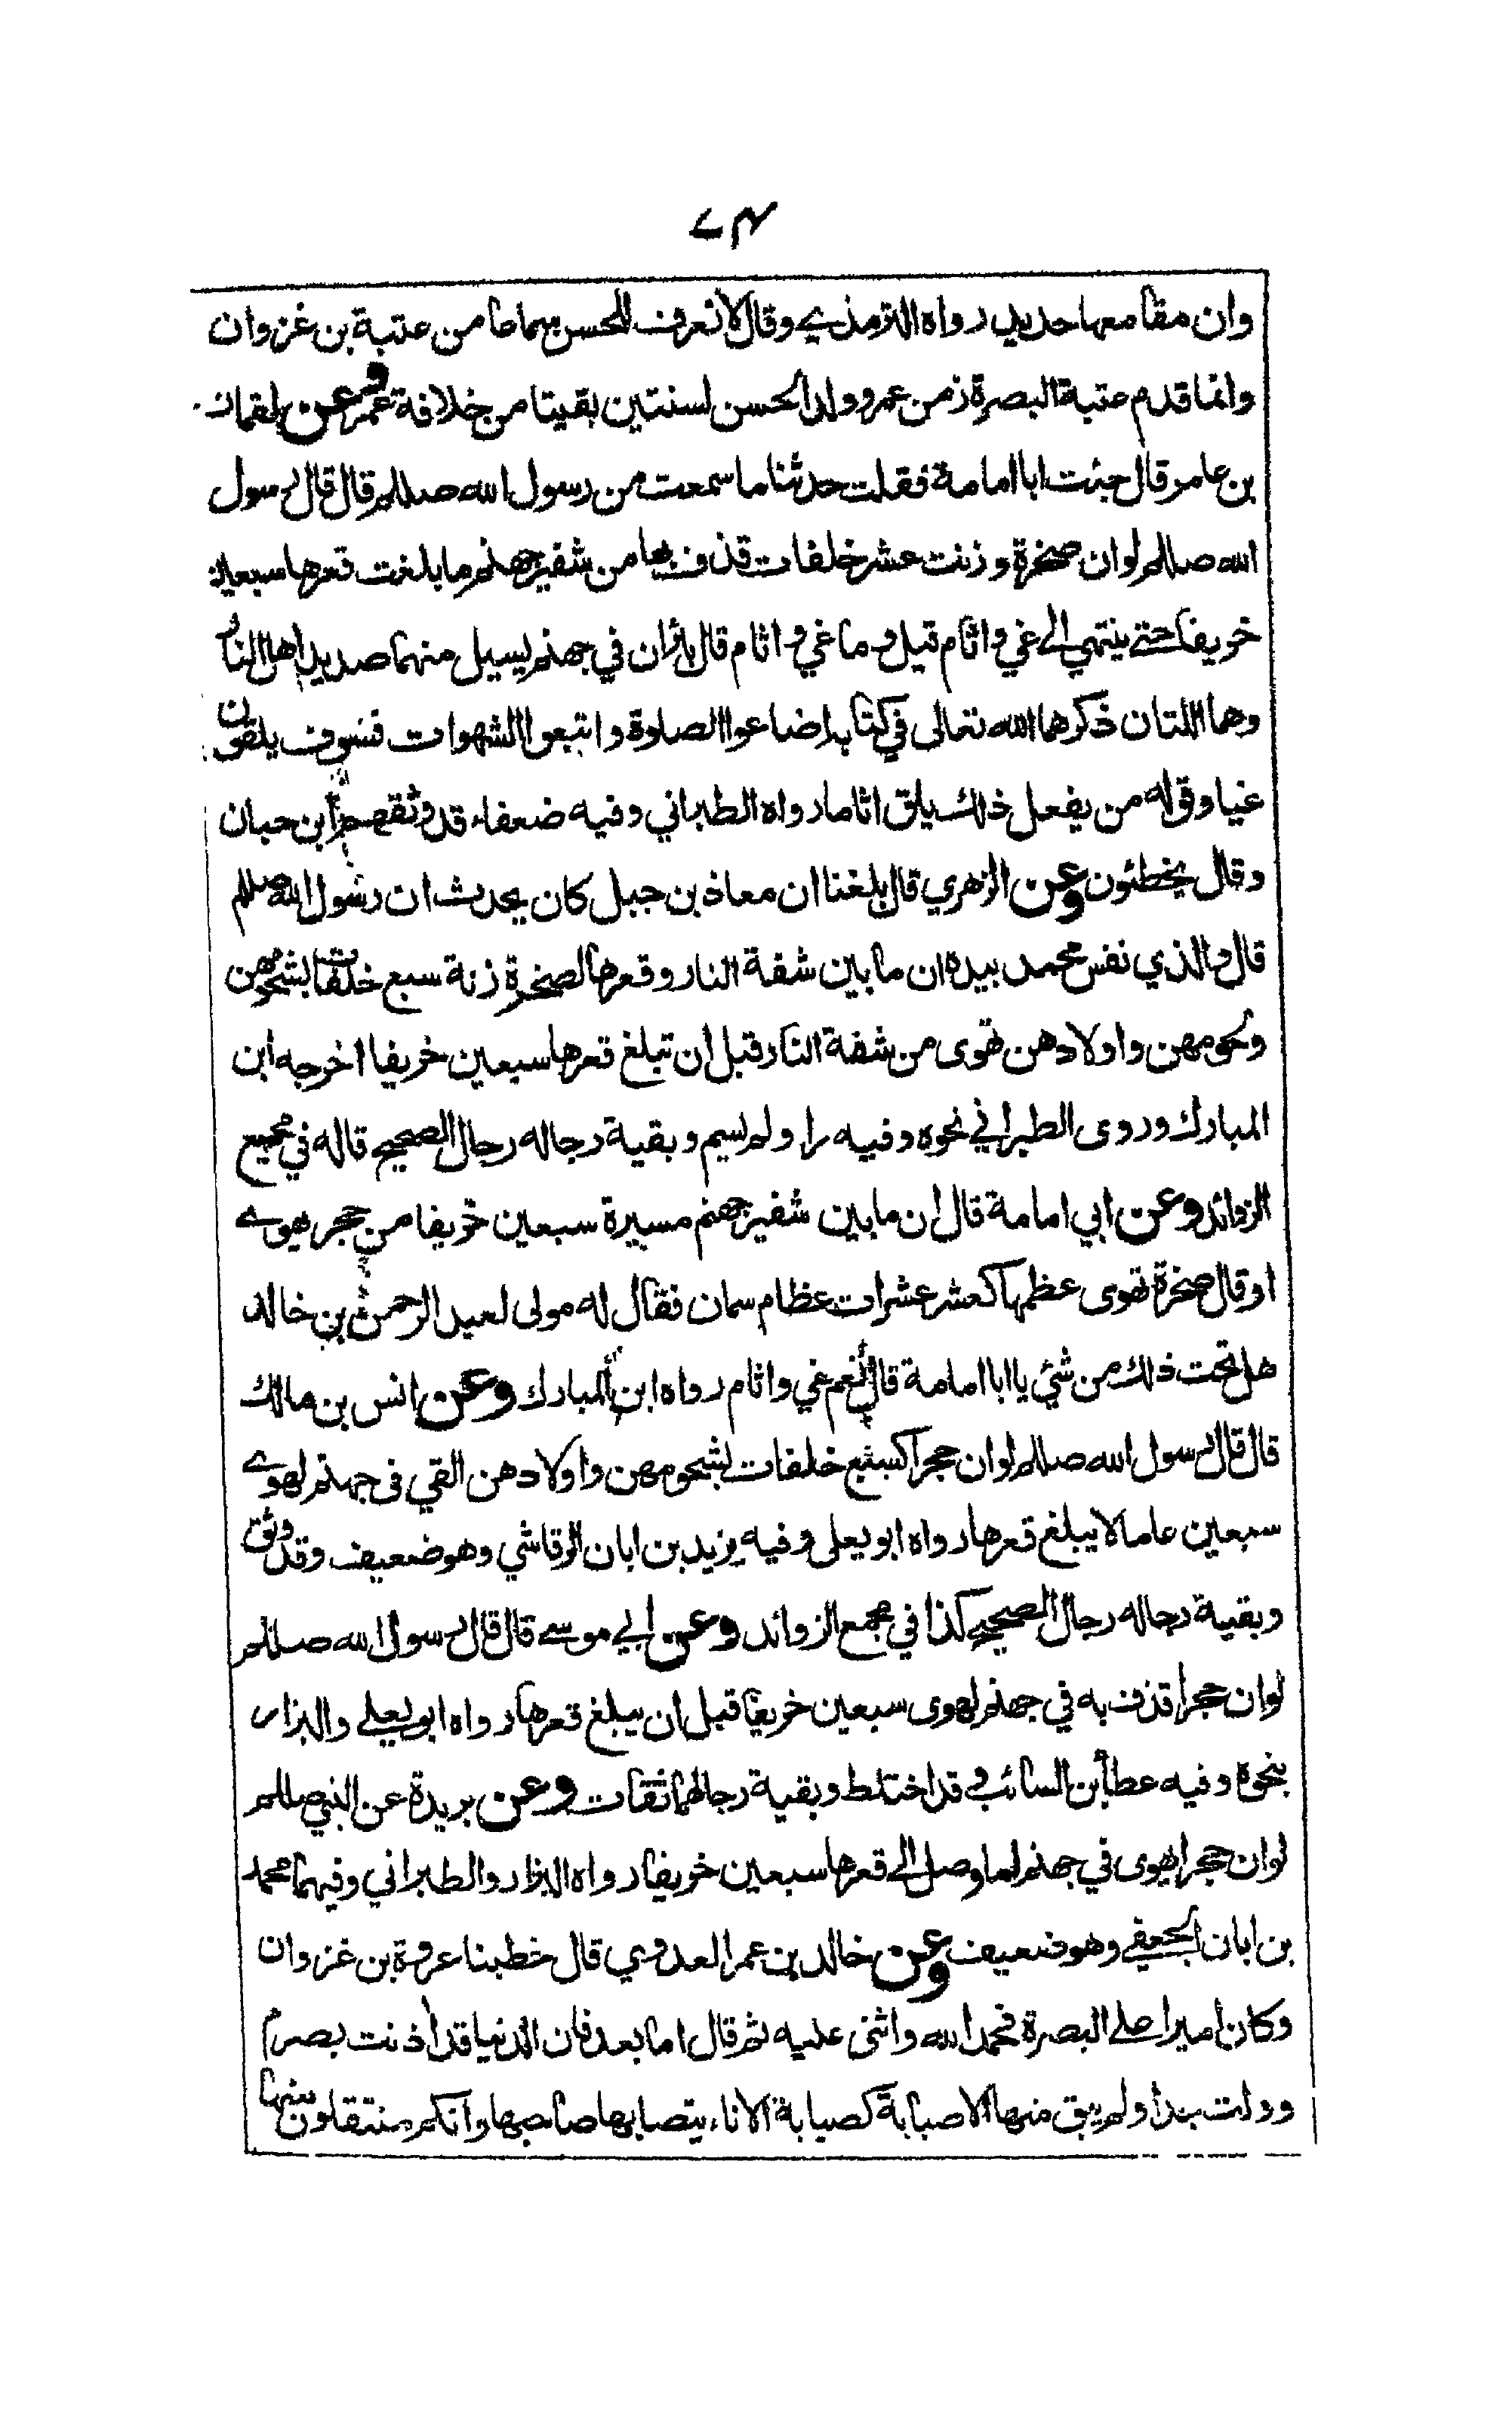 ٧٣
وان مقامعها حديد رواه الترمذي وقال لا نعرف للحسن سماعا من عتبة بن غزوان
وانما قدم عتبة البصرة زمن عمر وولد الحسن لسنتين بقيتا من خلافة عمر وعن لقمان
بن عامر قال جئت ابا امامة فقلت حدثنا ما سمعت من رسول الله صللم قال قال رسول
الله صللم لوان صخرة وزنت عشر خلفات قذف بها من شفير جهنم ما بلغت قعرها سبعين
خريفا حتى ينتهي الى غي واثام قيل وما غي واثام قال بئران في جهنم يسيل منهما صديد اهل النار
وهما اللتان ذكرهما الله تعالى في كتابه اضاعوا الصلوة واتبعوا الشهوات فسوف يلقون
غيا وقوله من يفعل ذلك يلق اثاما رواه الطبراني وفيه ضعفاء قد وثقهم ابن حبان
وقال يخطئون وعن الزهري قال بلغنا ان معاذ بن جبل كان يحدث ان رسول الله صللم
قال والذي نفس محمد بيده ان ما بين شفة النار وقعرها لصخرة زنة سبع خلفات بشحومهن
ولحومهن واولادهن تهوى من شفة النار قبل ان تبلغ قعرها سبعين خريفا اخرجه ابن
المبارك وروى الطبراني نحوه وفيه راو لم يسم وبقية رجاله رجال الصحيح قاله في مجمع
الزوائد وعن ابي امامة قال ان ما بين شفير جهنم مسيرة سبعين خريفا من حجر يهوي
او قال صخرة تهوى عظمها كعشر عشرات عظام سمان فقال له مولى لعبد الرحمن بن خالد
هل تحت ذلك من شئ يا ابا امامة قال نعم غي واثام رواه ابن المبارك وعن انس بن مالك
قال قال رسول الله صللم لوان حجرا كسبع خلفات بشحومهن واولادهن القي في جهنم لهوى
سبعين عاما لا يبلغ قعرها رواه ابو يعلى وفيه يزيد بن ابان الرقاشي وهو ضعيف وقد وثق
وبقية رجاله رجال الصحيح كذا في مجمع الزوائد وعن ابي موسى قال قال رسول الله صللم
لوان حجرا قذف به في جهنم لهوى سبعين خريفا قبل ان يبلغ قعرها رواه ابو يعلى والبزار
بنحوه وفيه عطا بن السائب وقد اختلط وبقية رجالهما ثقات وعن بريدة عن النبي صللم
لوان حجرا يهوى في جهنم لما وصل الى قعرها سبعين خريفا رواه البزار والطبراني وفيهما محمد
بن ابان الجعفي وهو ضعيف وعن خالد بن عمر العدوي قال خطبنا عروة بن غزوان
وكان اميرا على البصرة فحمد الله واثنى عليه ثم قال اما بعد فان الدنيا قد أذنت بصرم
وولت حذا ولم يبق منها الا صبابة كصبابة الاناء يتصابها صاحبها وانكم منتقلون منها